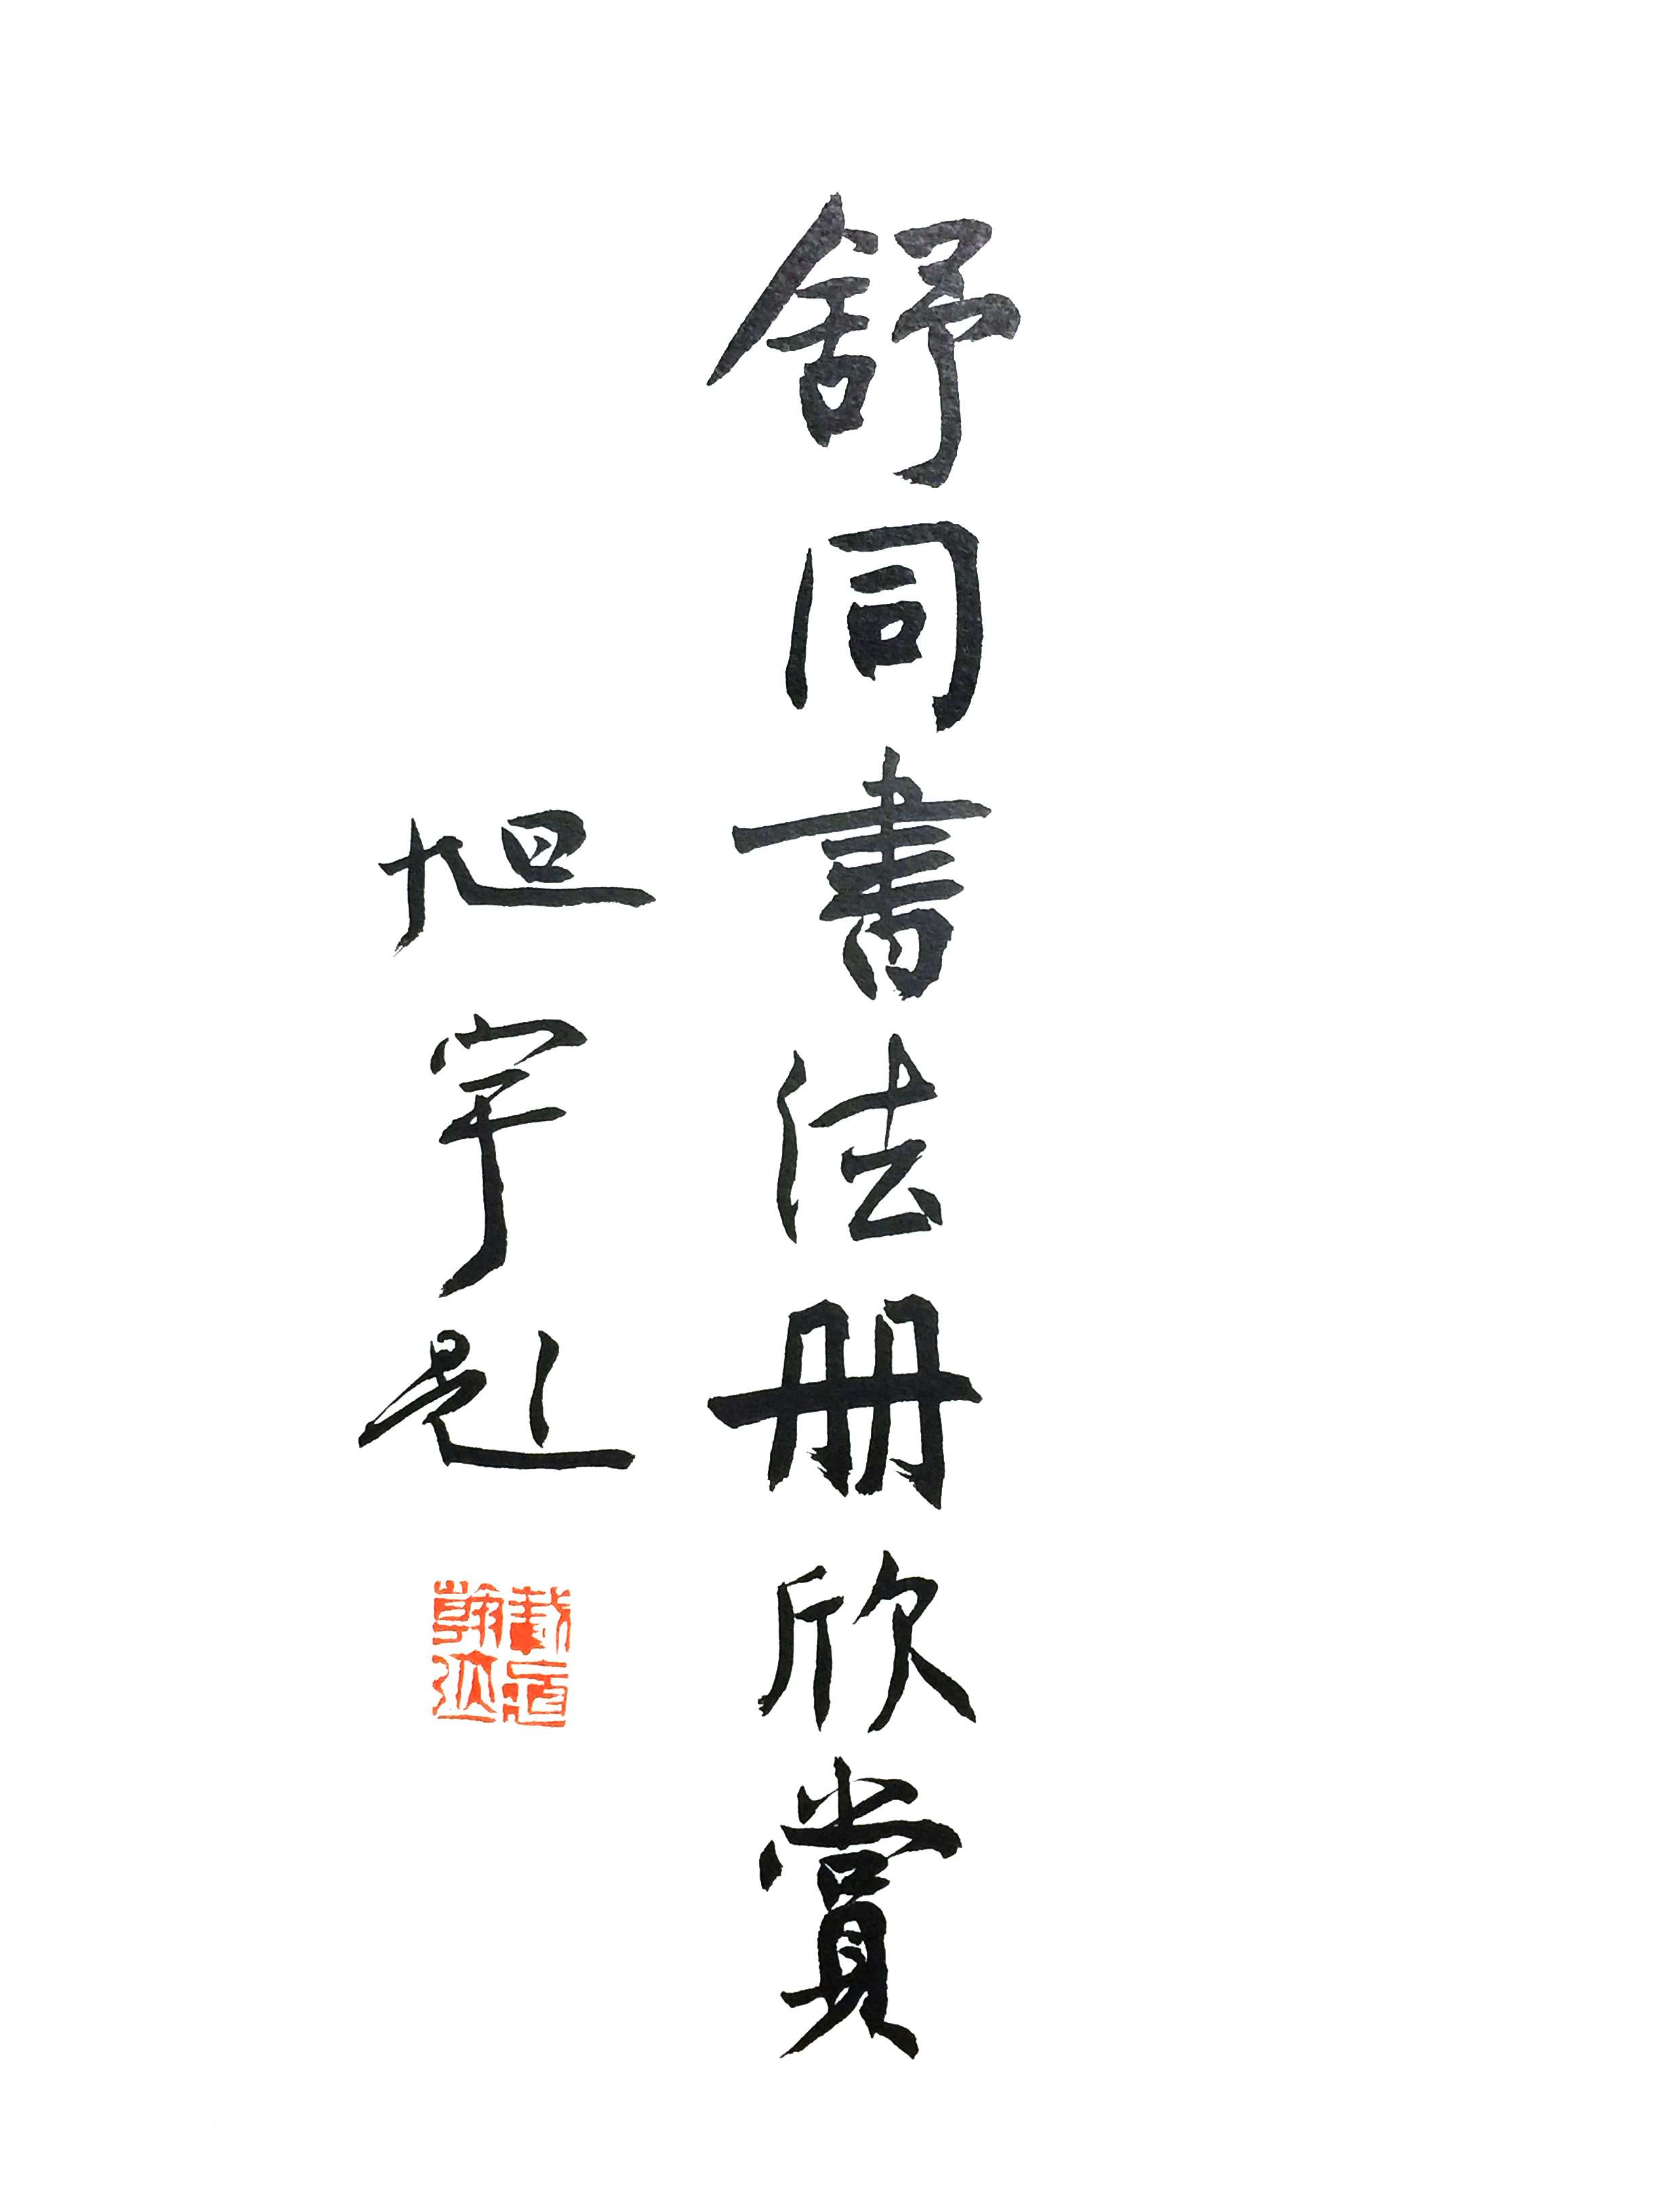 舒同書法册欣賞
旭宇題